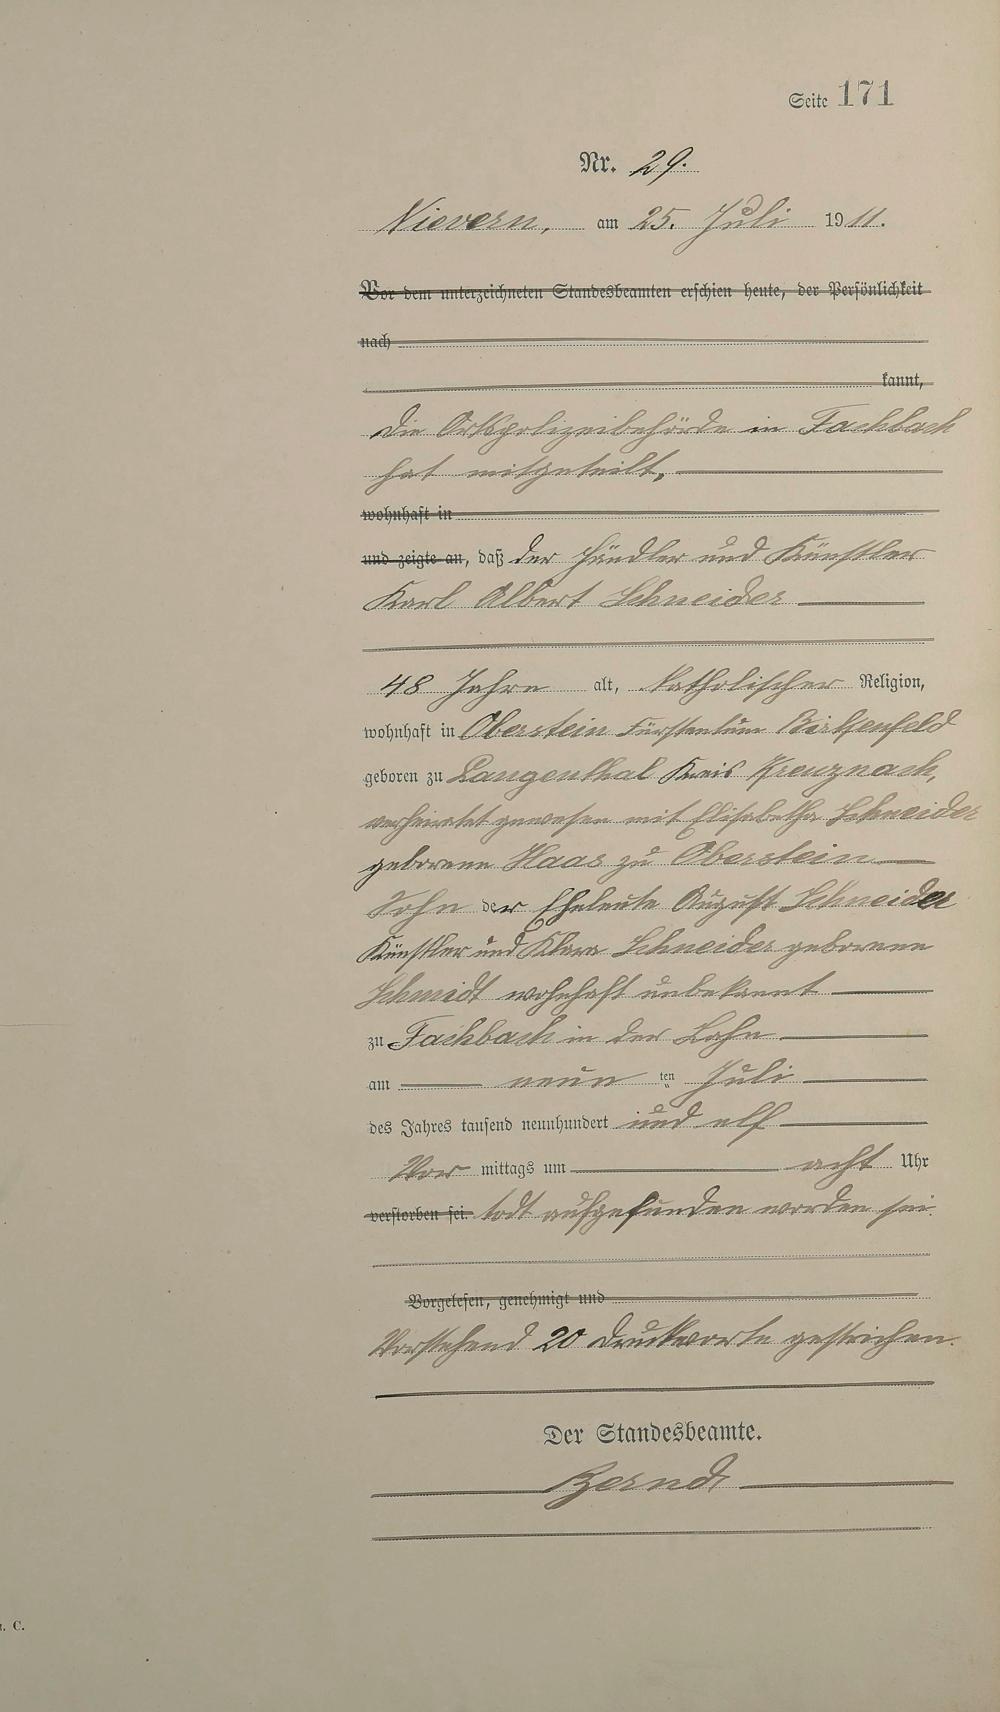 Seite 171
Nr. 29.
Nievern, am 25. Juli 1911.
Vor dem unterzeichneten Standesbeamten erschien heute, der Persönlichkeit
nach
kannt,
die Ortspolizeibehörde in Fachbach
hat mitgeteilt,
wohnhaft in
und zeigte an, daß der Händler und Künstler
Karl Albert Schneider
48 Jahre alt, katholischer Religion,
wohnhaft in Oberstein Fürstentum Birkenfeld
geboren zu Langenthal Kreis Kreuznach,
verheiratet gewesen mit Elisabetha Schneider
geborene Haas zu Oberstein
Sohn der Eheleute August Schneider
Künstler und Klara Schneider geborene
Schmidt wohnhaft unbekannt
zu Fachbach in der Lahn
am neun ten Juli
des Jahres tausend neunhundert und elf
Vor mittags um acht Uhr
verstorben sei. todt aufgefunden worden sei.
Vorgelesen, genehmigt und
Vorstehend 20 Druckworte gestrichen.
Der Standesbeamte.
Berndt
C.